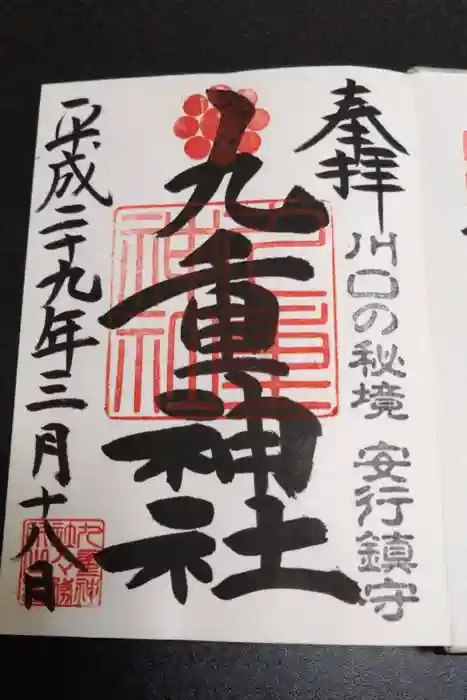 奉拝
川口の秘境 安行鎮守
九重神社
九重神社
平成二十九年三月十八日